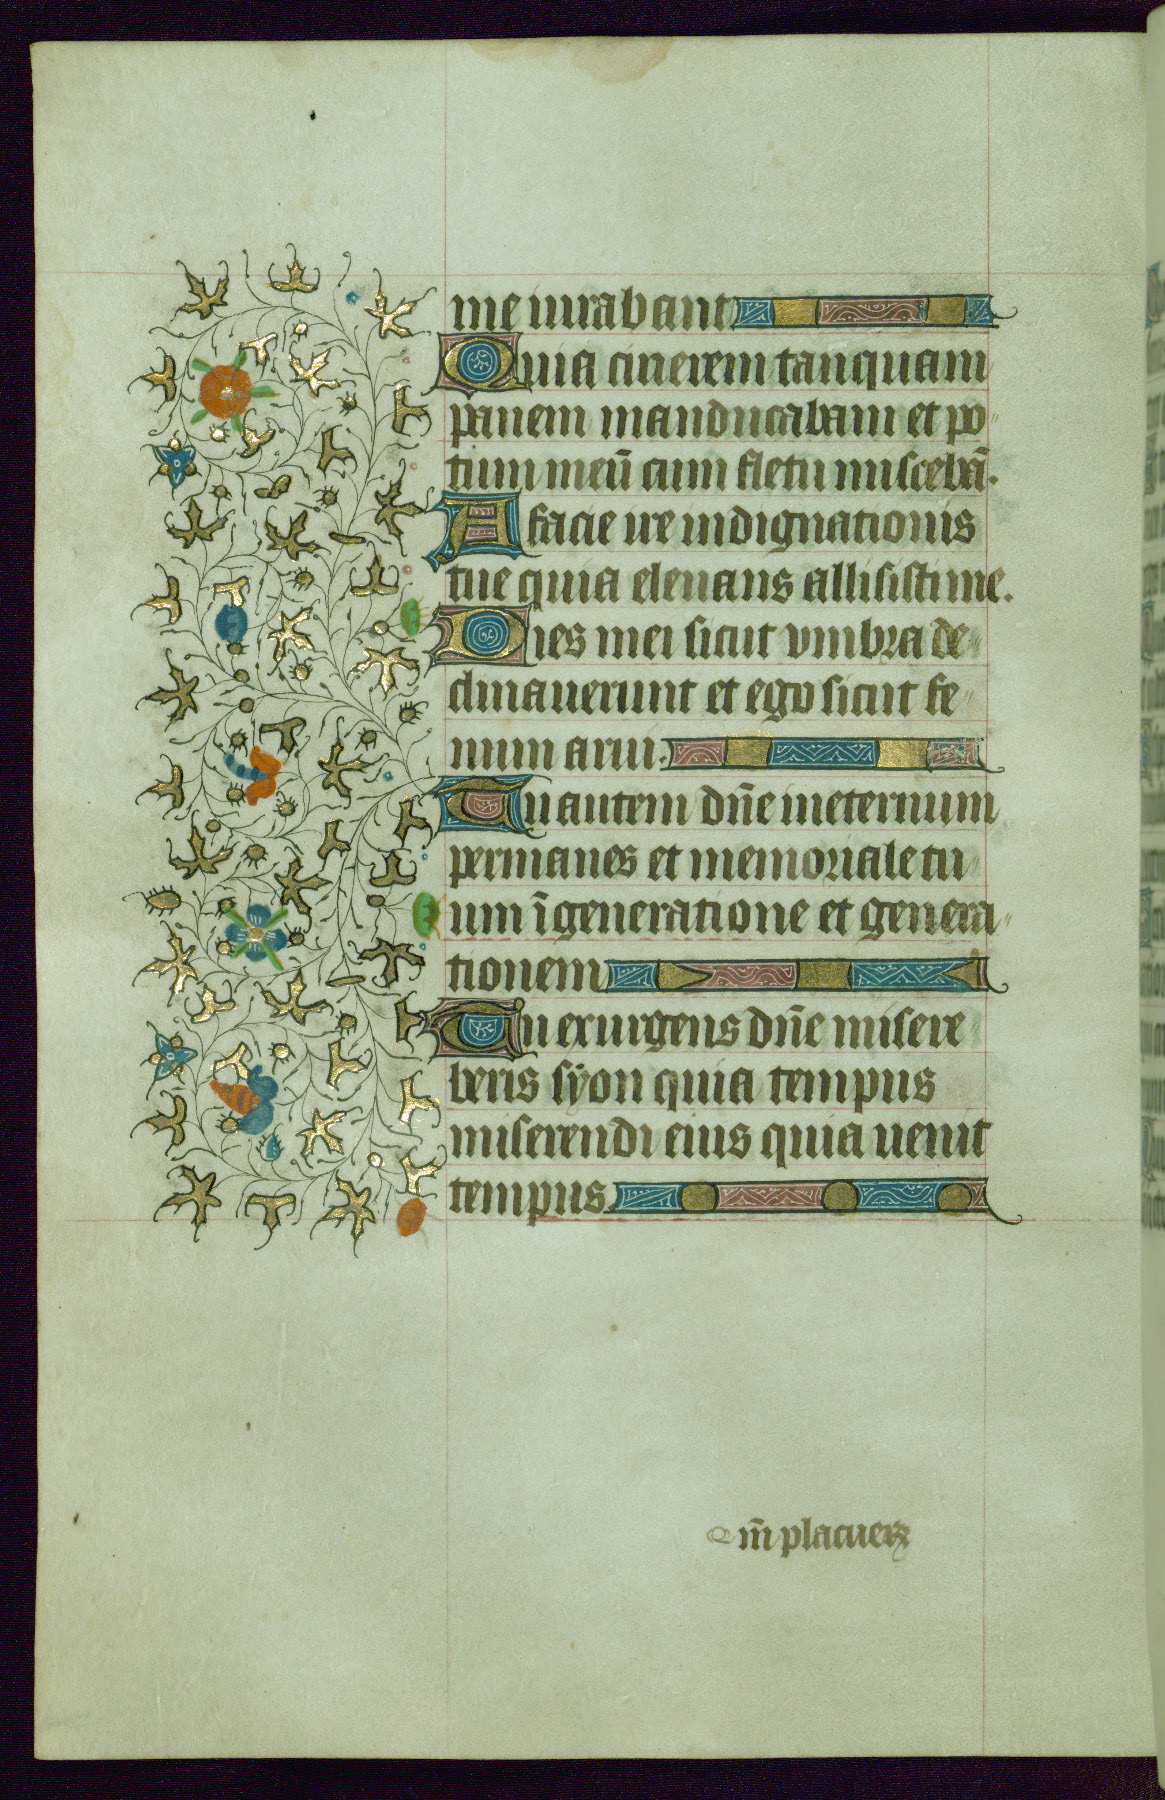 me iurabant
Quia cinerem tanquam
panem manducabam et po
tum meū cum fletu miscebā.
A facie ire indignationis
tue quia eleuans allisisti me.
Dies mei sicut vmbra de
clinauerunt et ego sicut fe
num arui.
Tu autem dn̄e ineternum
permanes et memoriale tu
um ī generatione et genera
tionem
Tu exurgens dn̄e misere
beris syon quia tempus
miserendi eius quia uenit
tempus.
Qm̄ placuerꝫ